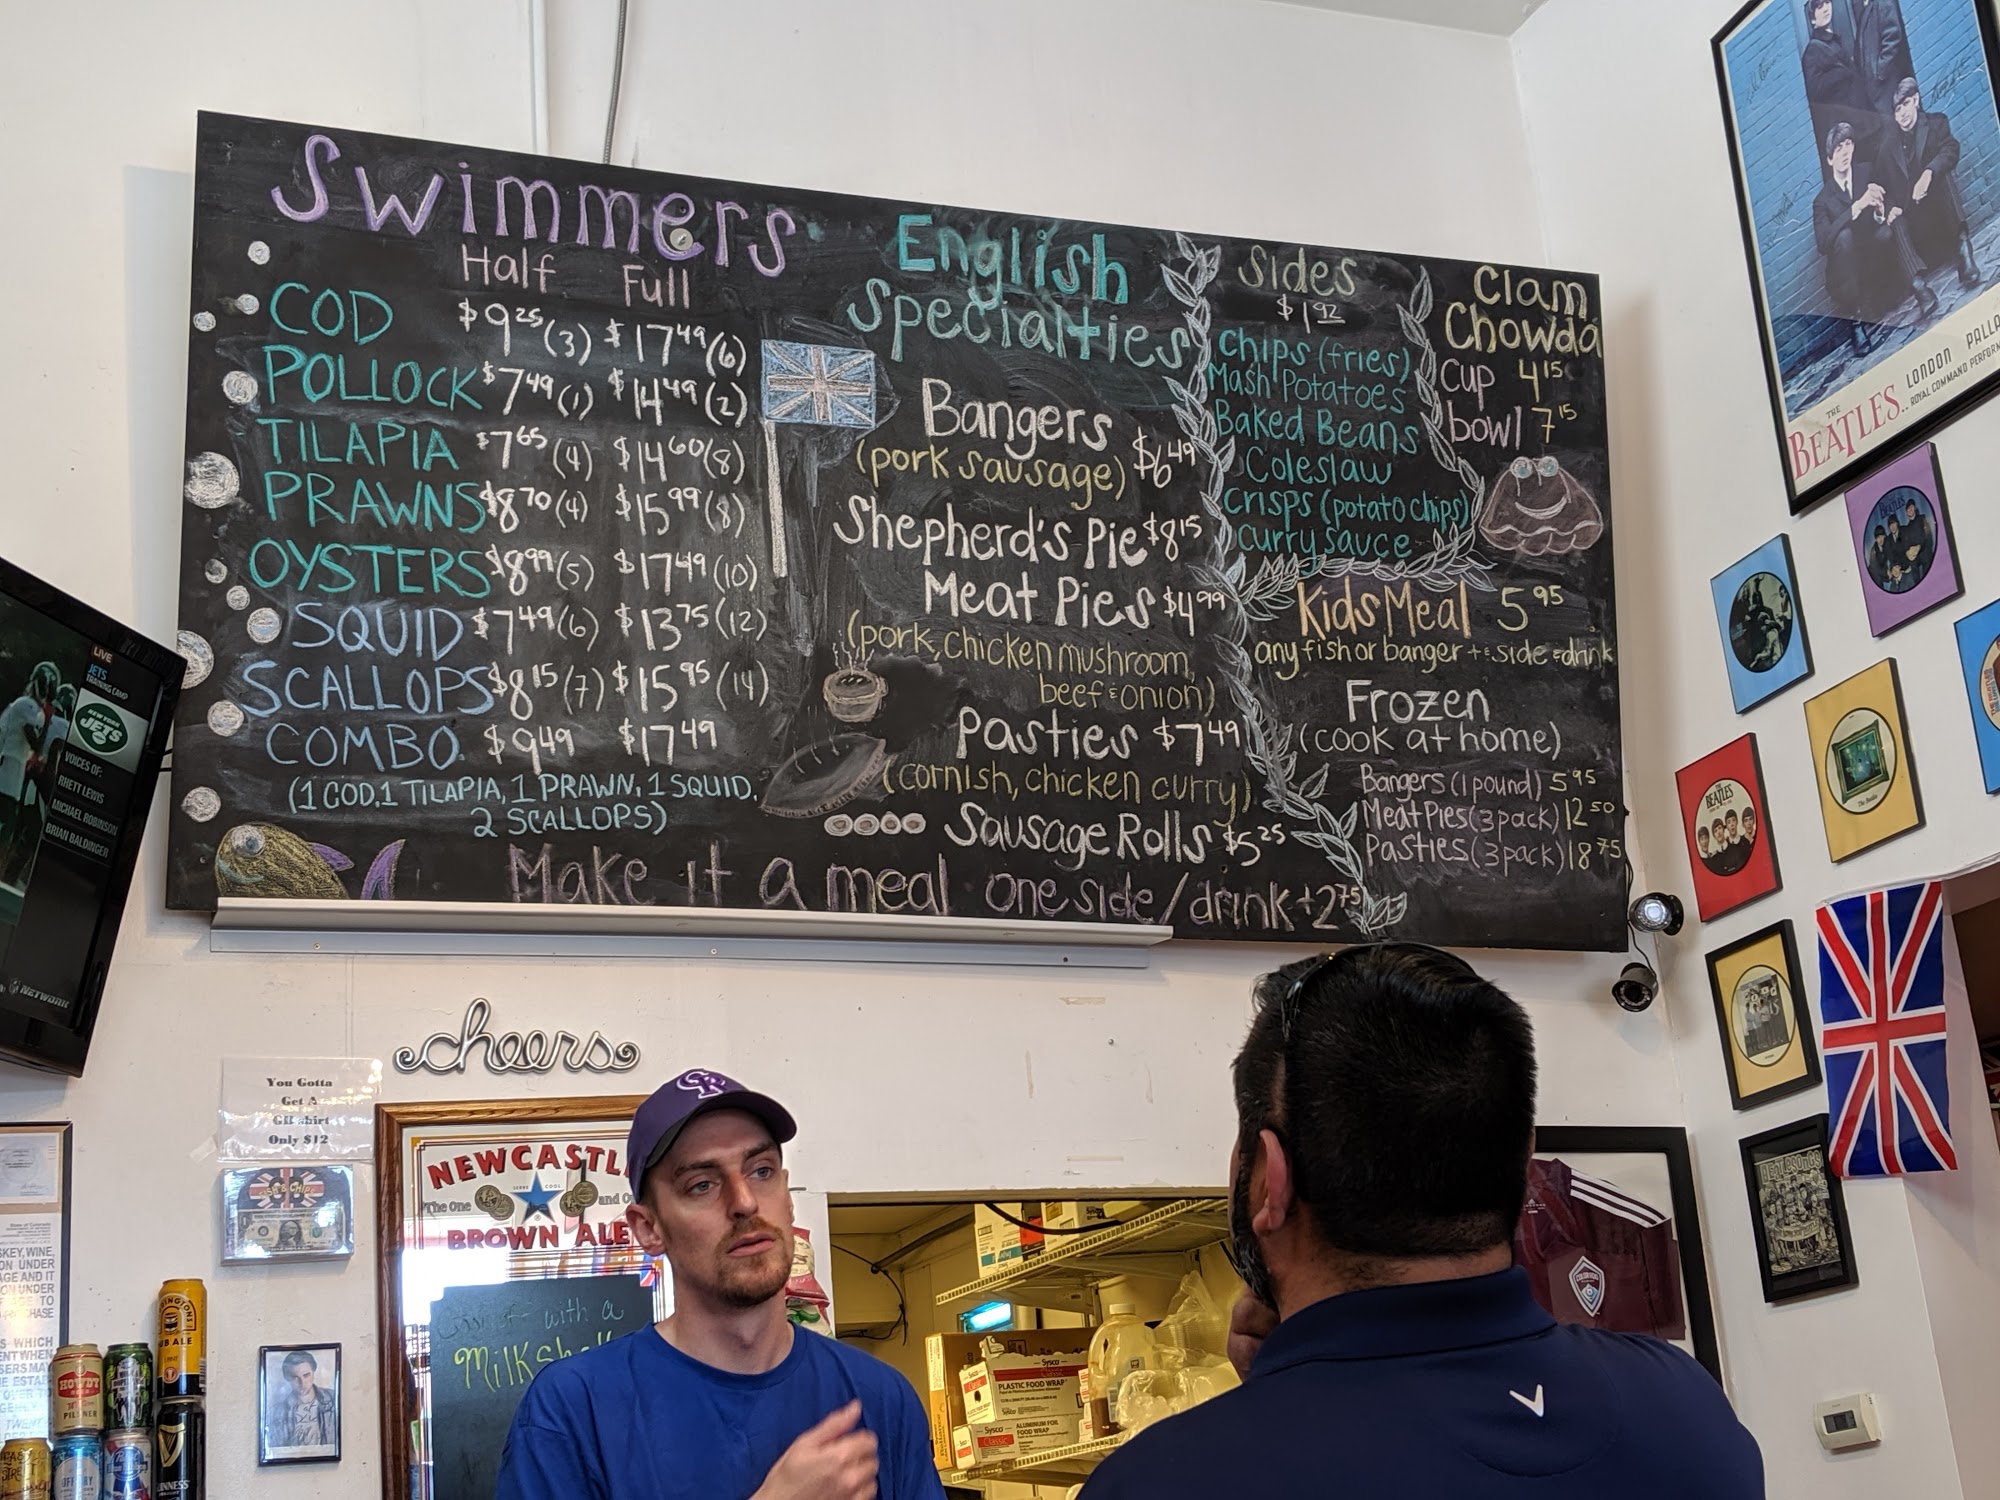 Swimmers
Half Full
COD $9.25 (3) $17.49 (6)
POLLOCK $7.49 (1) $14.49 (2)
TILAPIA $7.65 (4) $14.60 (8)
PRAWNS $8.70 (4) $15.99 (8)
OYSTERS $8.99 (5) $17.49 (10)
SQUID $7.49 (6) $13.75 (12)
SCALLOPS $8.15 (7) $15.95 (14)
COMBO $9.49 $17.49
(1 COD, 1 TILAPIA, 1 PRAWN, 1 SQUID,
2 SCALLOPS)
Make it a meal one side/drink +2.75
English
Specialties
Bangers
(pork sausage) $6.49
Shepherd's Pie $8.15
Meat Pies $4.99
(pork, chicken mushroom,
beef & onion)
Pasties $7.49
(cornish, chicken curry)
Sausage Rolls $5.25
Sides
$1.92
Chips (fries)
Mash Potatoes
Baked Beans
Coleslaw
Crisps (potato chips)
curry sauce
Clam
Chowda
Cup 4.15
bowl 7.15
Kids Meal 5.95
any fish or banger + side & drink
Frozen
(cook at home)
Bangers (1 pound) 5.95
Meat Pies (3 pack) 12.50
Pasties (3 pack) 18.75
THE
BEATLES..
LONDON PALLA
ROYAL COMMAND PERFORM
LIVE
JETS
TRAINING CAMP
NEW YORK
JETS
VOICES OF:
RHETT LEWIS
MICHAEL ROBINSON
BRIAN BALDINGER
NETWORK
cheers
You Gotta
Get A
GB shirt
Only $12
FISH & CHIPS
NEWCASTL
The One and On
SERVE COOL
BROWN ALE
with a
CR
State of Colorado
SKEY, WINE,
ON UNDER
AGE AND IT
ON UNDER
AGE TO
CHASE
S WHICH
ENT WHEN
HOWDY
PILSNER
GUINNESS
Sysco
Classic
PLASTIC FOOD WRAP
Sysco
Classic
ALUMINUM FOIL
FOOD WRAP
THE
BEATLES
BEATLES
The Beatles
COLORADO